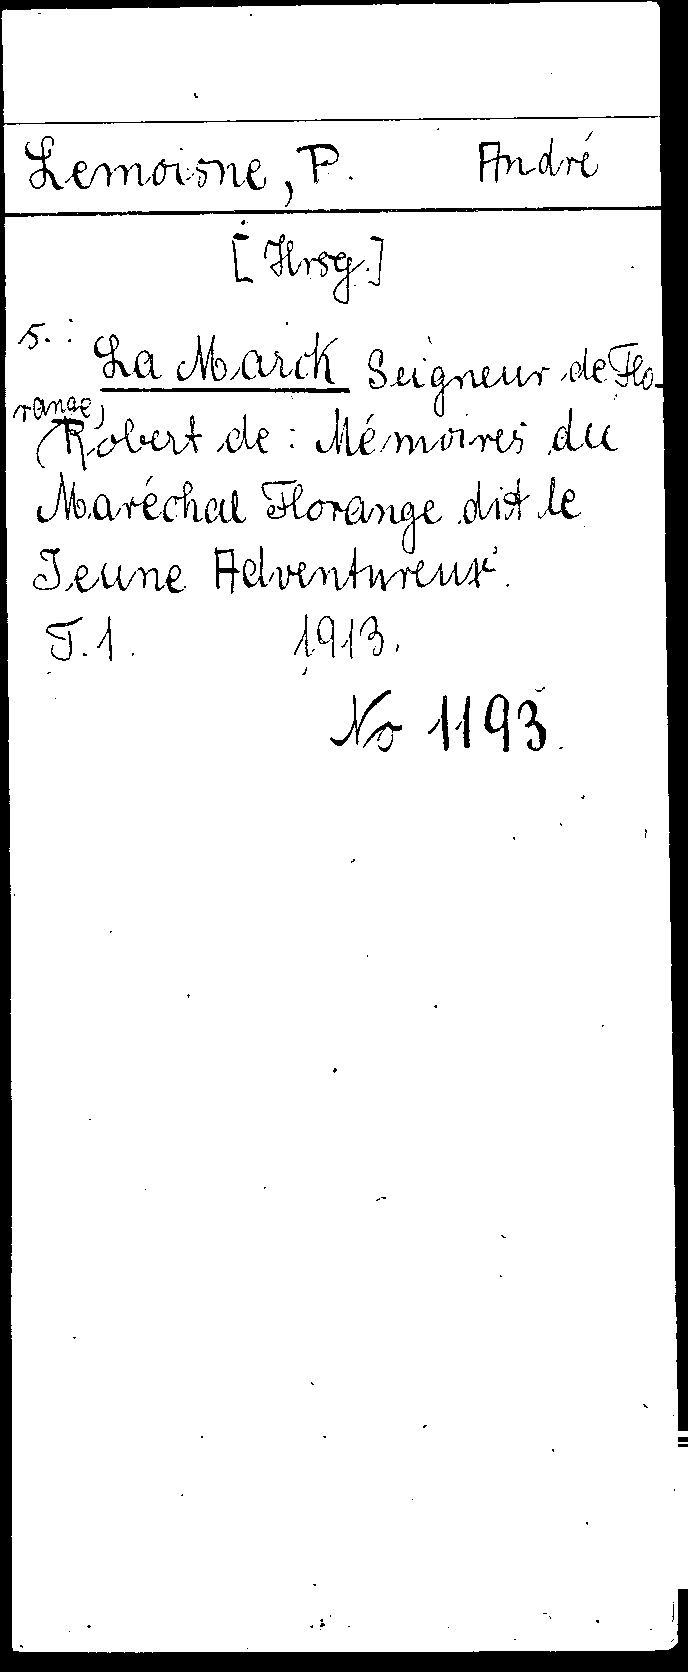 Lemoisne, P. André
[Hrsg.]
s.: La Marck Seigneur de Flo-
range,
Robert de: Mémoires du
Maréchal Florange dit le
Jeune Adventureux.
T.1. 1913.
No 1193.